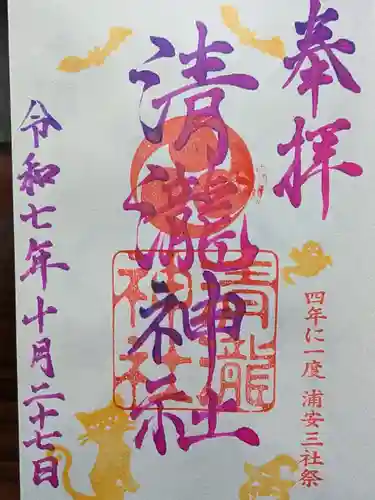 奉拝
四年に一度 浦安三社祭
清瀧神社
清龍
神社
令和七年十月二十七日